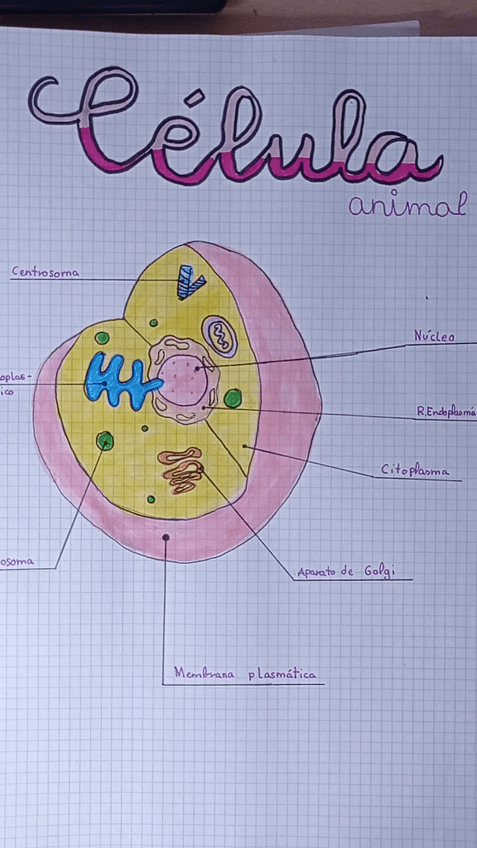 Célula
animal
Centrosoma
Núcleo
oplas-
ico
R.Endoplasmá
Citoplasma
osoma
Aparato de Golgi
Membrana plasmática